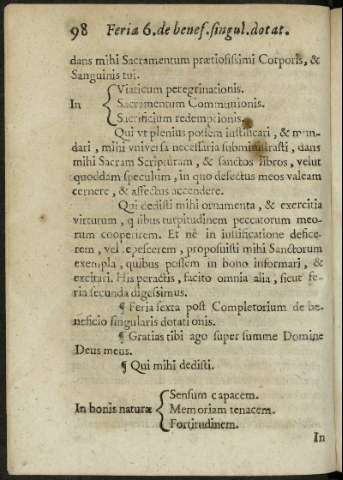 98 Feria 6. de benef. singul. dotat.
dans mihi Sacramentum prætiosissimi Corporis, &
Sanguinis tui.
Viaticum peregrinationis.
In { Sacramentum Communionis.
Sacrificium redemptionis.
Qui vt plenius possem iustificari, & mun-
dari, mihi vniversa necessaria subministrasti, dans
mihi Sacram Scripturam, & sanctos libros, velut
quoddam speculum, in quo defectus meos valeam
cernere, & affectus accendere.
Qui dedisti mihi ornamenta, & exercitia
virtutum, quibus turpitudinem peccatorum meo-
rum cooperirem. Et nè in iustificatione defice-
rem, vel tepescerem, proposuisti mihi Sanctorum
exempla, quibus possem in bono informari, &
excitari. His peractis, facito omnia alia, sicut fe-
ria secunda digessimus.
¶ Feria sexta post Completorium de be-
neficio singularis dotationis.
¶ Gratias tibi ago super summe Domine
Deus meus.
¶ Qui mihi dedisti.
Sensum capacem.
In bonis naturæ { Memoriam tenacem.
Fortitudinem.
In